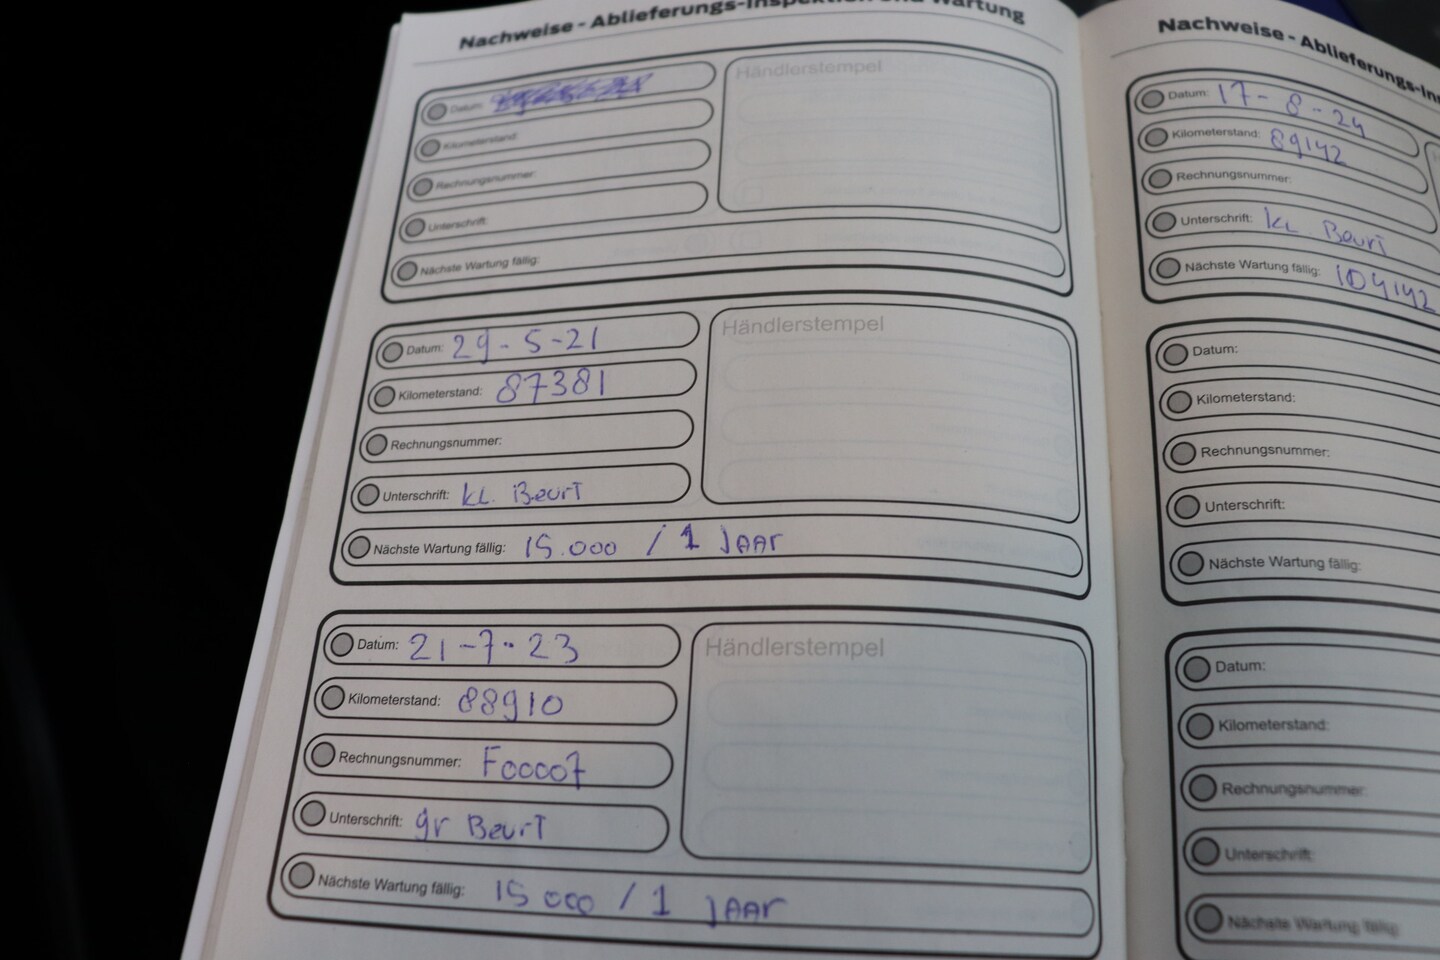 Nachweise - Ablieferungs-Inspektion und Wartung
Datum:
Kilometerstand:
Rechnungsnummer:
Unterschrift:
Nächste Wartung fällig:
Händlerstempel
Datum: 29-5-21
Kilometerstand: 87381
Rechnungsnummer:
Unterschrift: kl. Beurt
Nächste Wartung fällig: 15.000 / 1 JAAr
Händlerstempel
Datum: 21-7-23
Kilometerstand: 88910
Rechnungsnummer: F00007
Unterschrift: gr Beurt
Nächste Wartung fällig: 15 000 / 1 JAAr
Händlerstempel
Nachweise - Ablieferungs-
Datum: 17-8-24
Kilometerstand: 89142
Rechnungsnummer:
Unterschrift: kl Beurt
Nächste Wartung fällig: 104142
Datum:
Kilometerstand:
Rechnungsnummer:
Unterschrift:
Nächste Wartung fällig:
Datum:
Kilometerstand:
Rechnungsnummer:
Unterschrift:
Nächste Wartung fällig: